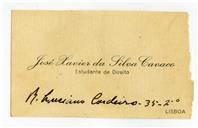 José Xavier da Silva Cavaco
Estudante de Direito
R. Luciano Cordeiro - 35-2º
LISBOA